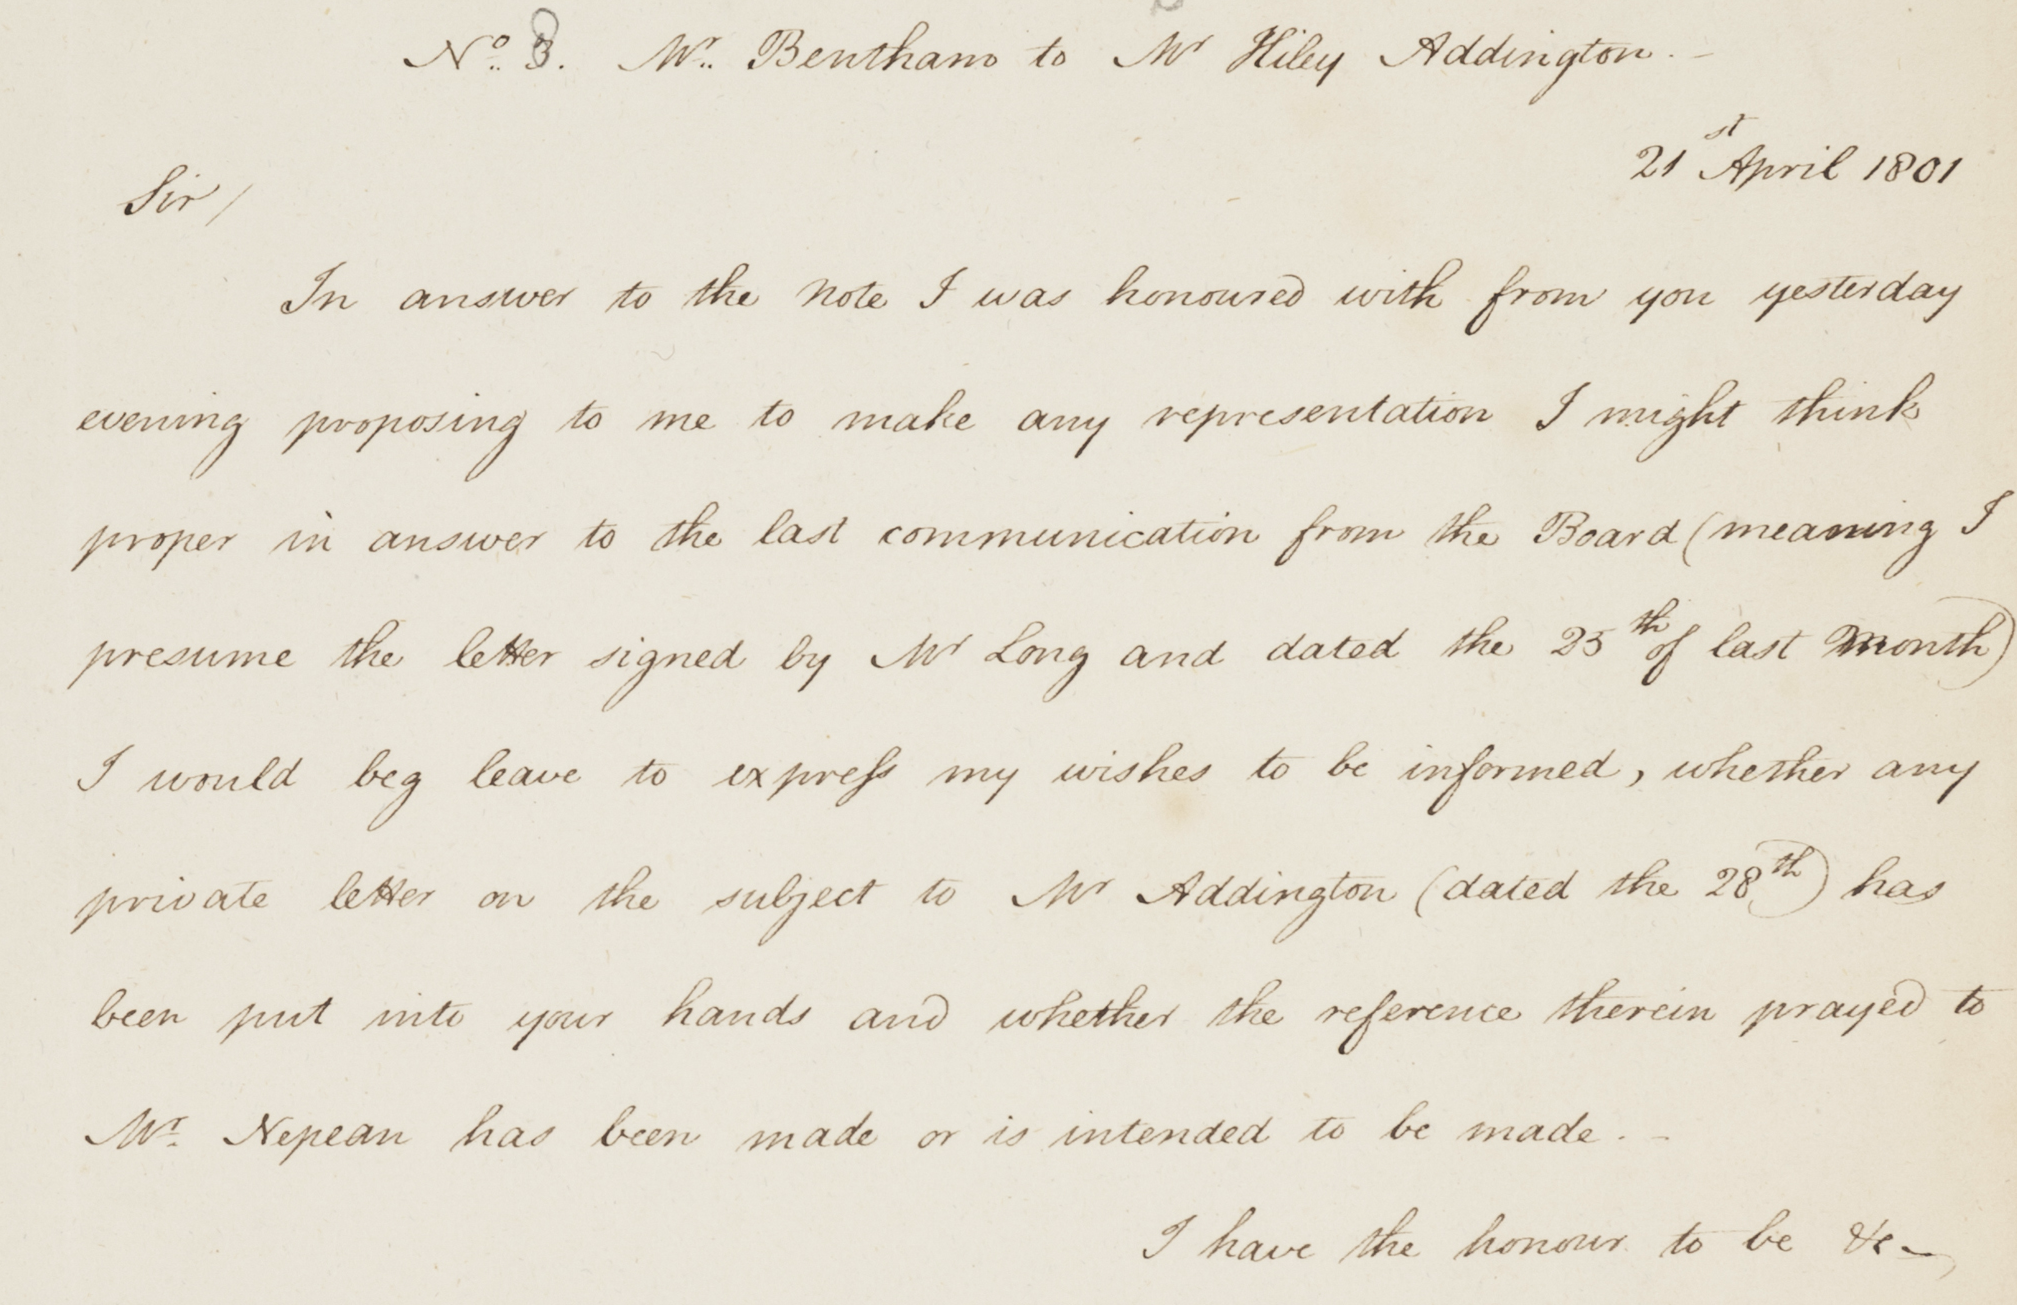 No. 8. Mr. Bentham to Mr Hiley Addington. -
21st April 1801
Sir /
In answer to the note I was honoured with from you yesterday
evening proposing to me to make any representation I might think
proper in answer to the last communication from the Board (meaning I
presume the letter signed by Mr Long and dated the 25th of last Month)
I would beg leave to express my wishes to be informed, whether any
private letter on the subject to Mr Addington (dated the 28th) has
been put into your hands and whether the reference therein prayed to
Mr. Nepean has been made or is intended to be made. -
I have the honour to be &c -